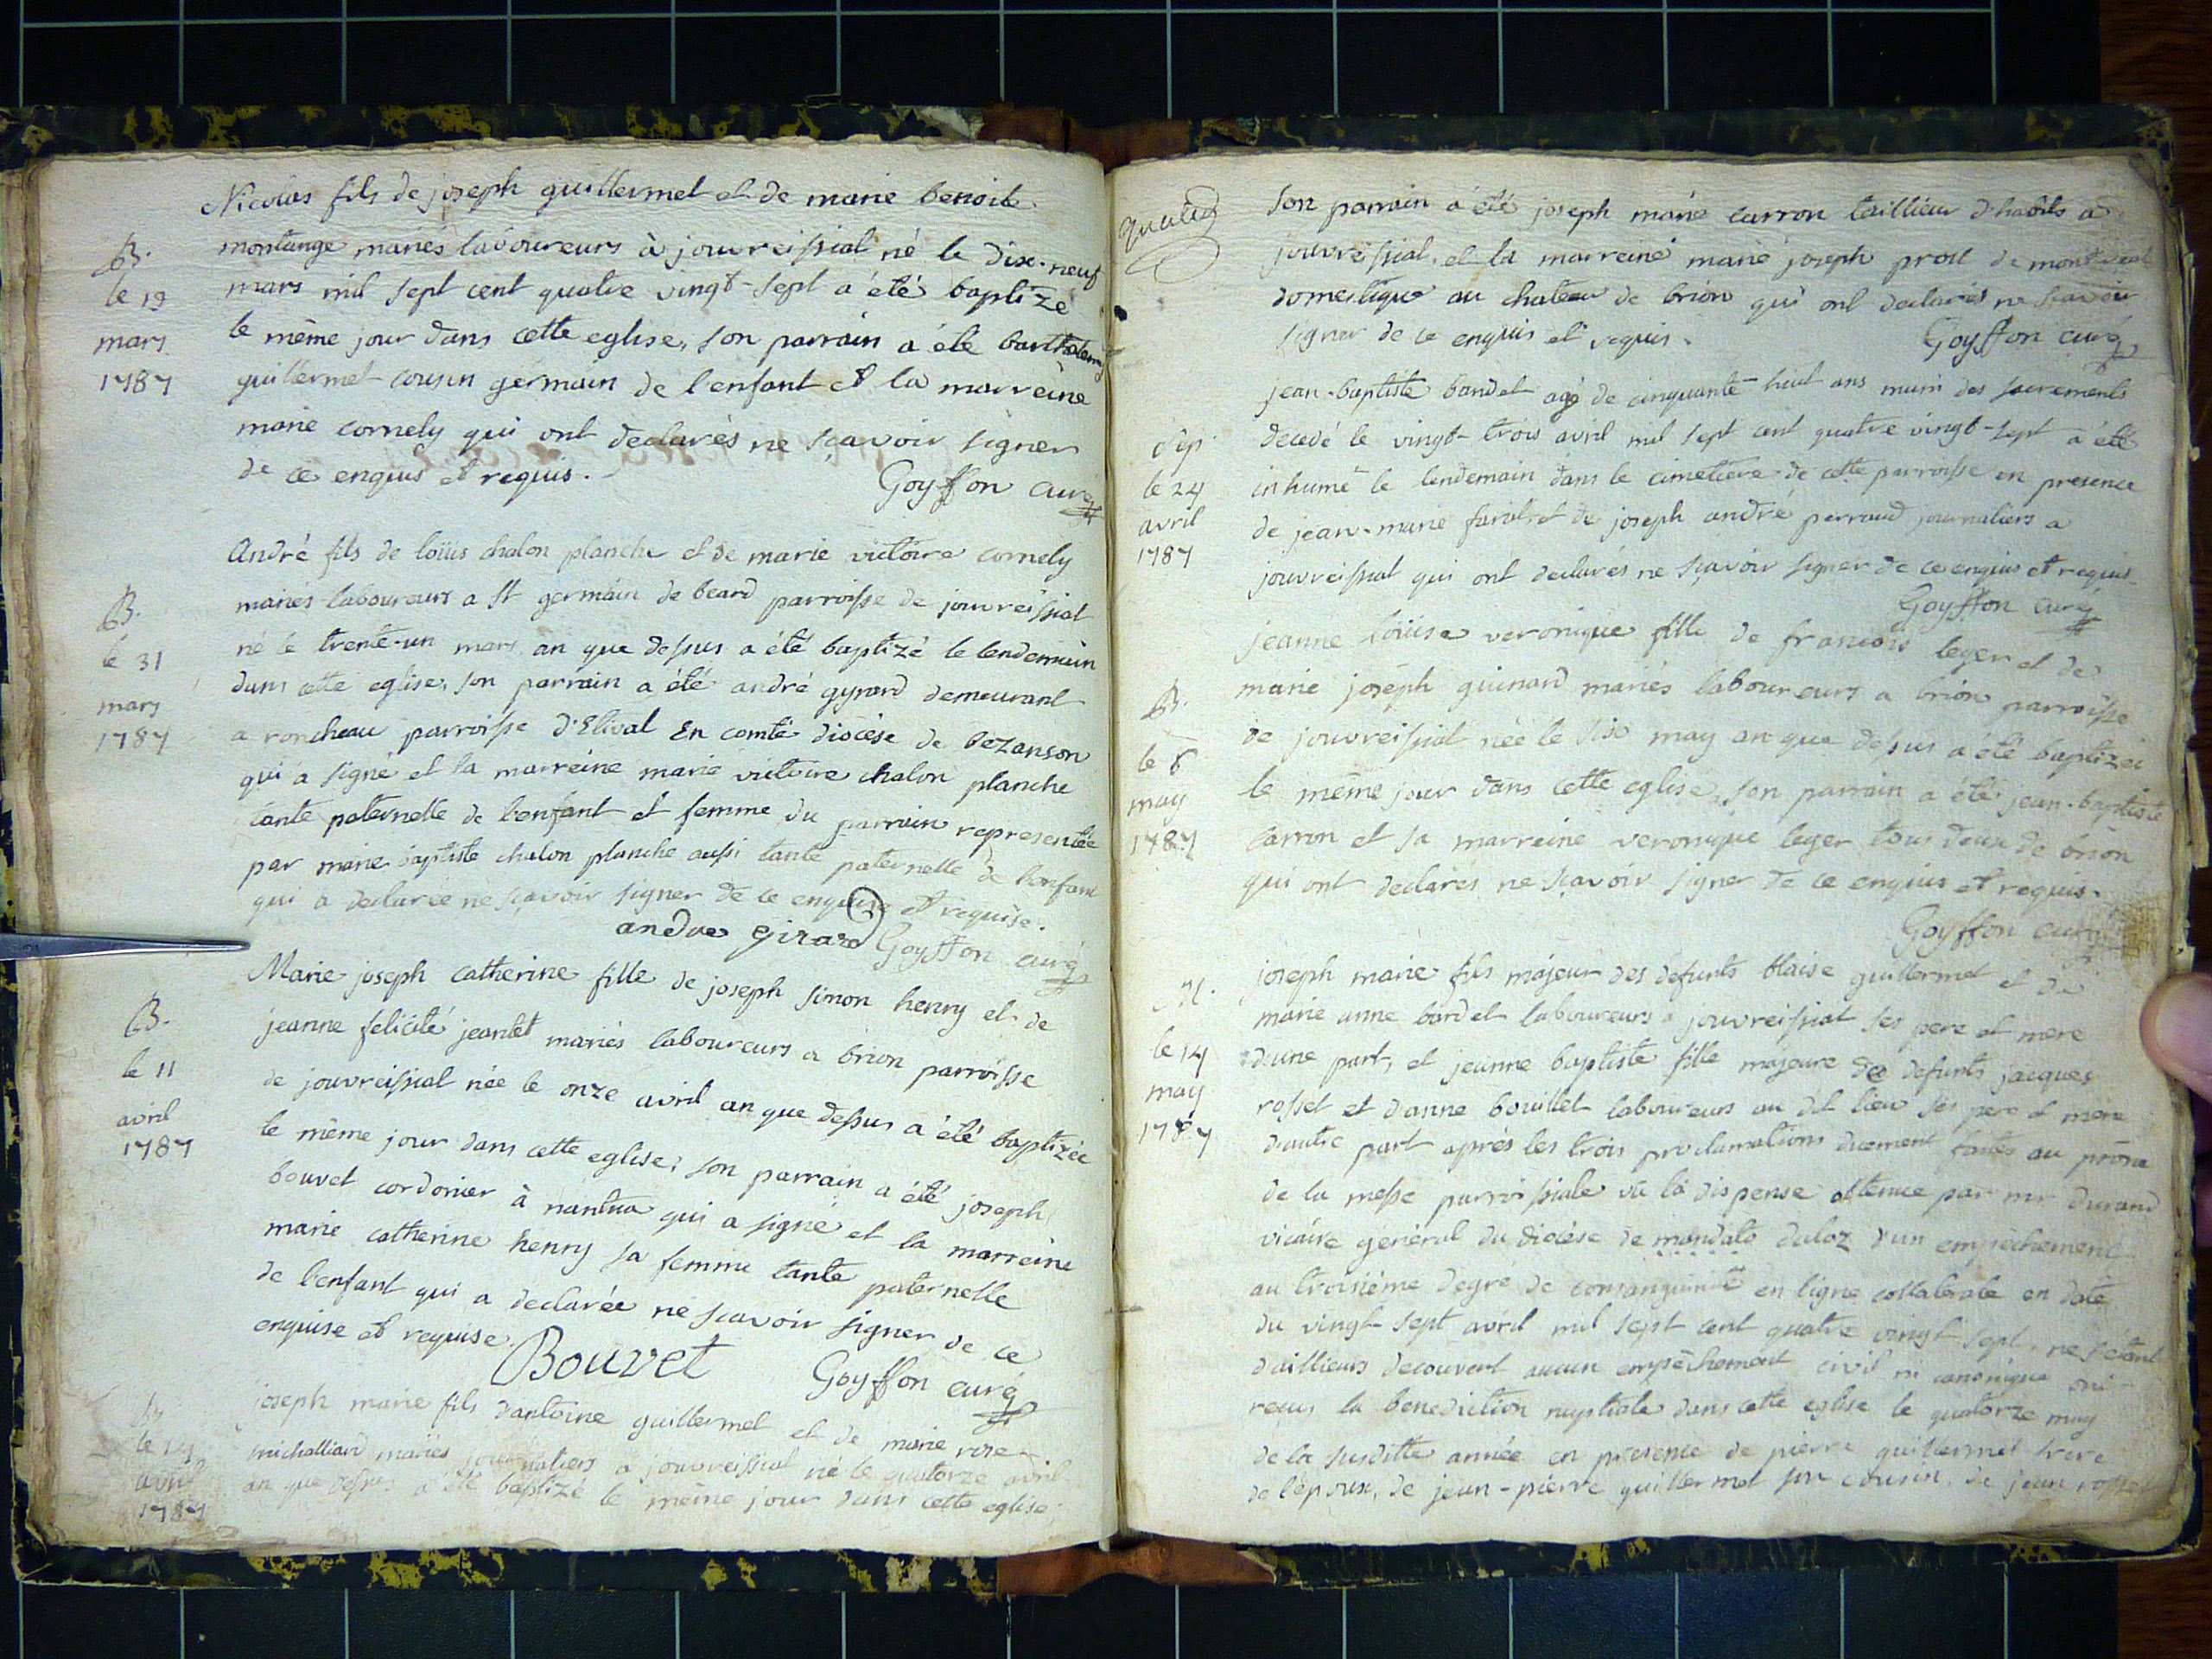 Nicolas fils de joseph guillermet et de marie benoite
B.
le 19
mars
1787
montange mariés laboureurs à jouvreissial né le dix-neuf
mars mil sept cent quatre vingt-sept a été baptizé
le même jour dans cette eglise, son parrain a été barthelemy
guillermet cousin germain de l'enfant et la marreine
marie cornely qui ont declarés ne sçavoir signer
de ce enquis et requis.
Goyffon curé
B.
le 31
mars
1787
André fils de loüis chalon planche et de marie victoire cornely
mariés laboureurs a St germain de beard parroisse de jouvreissial
né le trente-un mars an que dessus a été baptizé le lendemain
dans cette eglise, son parrain a été andré gyrard demeurant
a roncheau parroisse d'Elival En comté diocèse de bezanson
qui a signé et la marreine marie victoire chalon planche
tante paternelle de l'enfant et femme du parrain representée
par marie baptiste chalon planche aussi tante paternelle de l'enfant
qui a declarée ne sçavoir signer de ce enquise et requise.
andre Girard Goyffon curé
B.
le 11
avril
1787
Marie joseph catherine fille de joseph simon henry et de
jeanne felicité jeantet mariés laboureurs a brion parroisse
de jouvreissial née le onze avril an que dessus a été baptizée
le même jour dans cette eglise; son parrain a été joseph
bouvet cordonier à nantua qui a signé et la marreine
marie catherine henry sa femme tante paternelle
de l'enfant qui a declarée ne sçavoir signer de ce
enquise et requise.
Bouvet Goyffon curé
B
le 14
avril
1787
joseph marie fils d'antoine guillermet et de marie rose
michalliard mariés journaliers a jouvreissial né le quatorze avril
an que dessus a été baptizé le même jour dans cette eglise;
son parrain a été joseph marie carron taillieur d'habits a
jouvreissial, et la marreine marie joseph prost de
domestique au chateau de brion qui ont declarés ne sçavoir
signer de ce enquis et requis.
Goyffon curé
sep
le 24
avril
1787
jean-baptiste bardet agé de cinquante huit ans muni des sacrements
decedé le vingt-trois avril mil sept cent quatre vingt-sept a été
inhumé le lendemain dans le cimetière de cette parroisse en presence
de jean-marie et de joseph andré perraud journaliers a
jouvreissial qui ont declarés ne sçavoir signer de ce enquis et requis
Goyffon curé
B.
le 6
may
1787
jeanne loüise veronique fille de francois leger et de
marie joseph guinard mariés laboureurs a brion parroisse
de jouvreissial née le six may an que dessus a été baptizée
le même jour dans cette eglise, son parrain a été jean-baptiste
carron et sa marreine veronique leger tous deux de brion
qui ont declarés ne sçavoir signer de ce enquis et requis.
Goyffon curé
M.
le 14
may
1787
joseph marie fils majeur des defunts blaise guillermet et de
marie anne bardet laboureurs a jouvreissial ses pere et mere
d'une part, et jeanne baptiste fille majeure de defunts jacques
rosset et d'anne bouillet laboureurs au dit lieu ses pere et mere
d'autre part après les trois proclamations duement faites au prône
de la messe parroissiale vû la dispense obtenue par mr durand
vicaire general du diocèse de mandato daloz d'un empêchement
au troisième degré de consanguinité en ligne collaterale en date
du vingt sept avril mil sept cent quatre vingt sept, ne s'étant
d'aillieurs decouvert aucun empêchement civil ni canonique ont
recus la benediction nuptiale dans cette eglise le quatorze may
de la susditte année en presence de pierre guillermet frere
de l'époux, de jean-pierre guillermet son cousin, de jean rosset